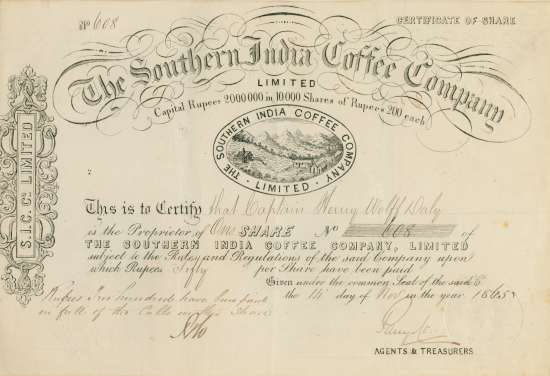 No 608
CERTIFICATE OF SHARE
The Southern India Coffee Company
LIMITED
Capital Rupees 2000000 in 10000 Shares of Rupees 200 each
THE SOUTHERN INDIA COFFEE COMPANY
· LIMITED ·
S.I.C. Co LIMITED
This is to Certify that Captain Henry Wolff Daly
is the Proprietor of One SHARE No 608 of
THE SOUTHERN INDIA COFFEE COMPANY, LIMITED
subject to the Rules and Regulations of the said Company upon
which Rupees Fifty per Share have been paid
Given under the common Seal of the said Co
the 14 day of Nov in the year 1865
Rupees Two hundred have been paid
in full of the Calls on this Share
AGENTS & TREASURERS